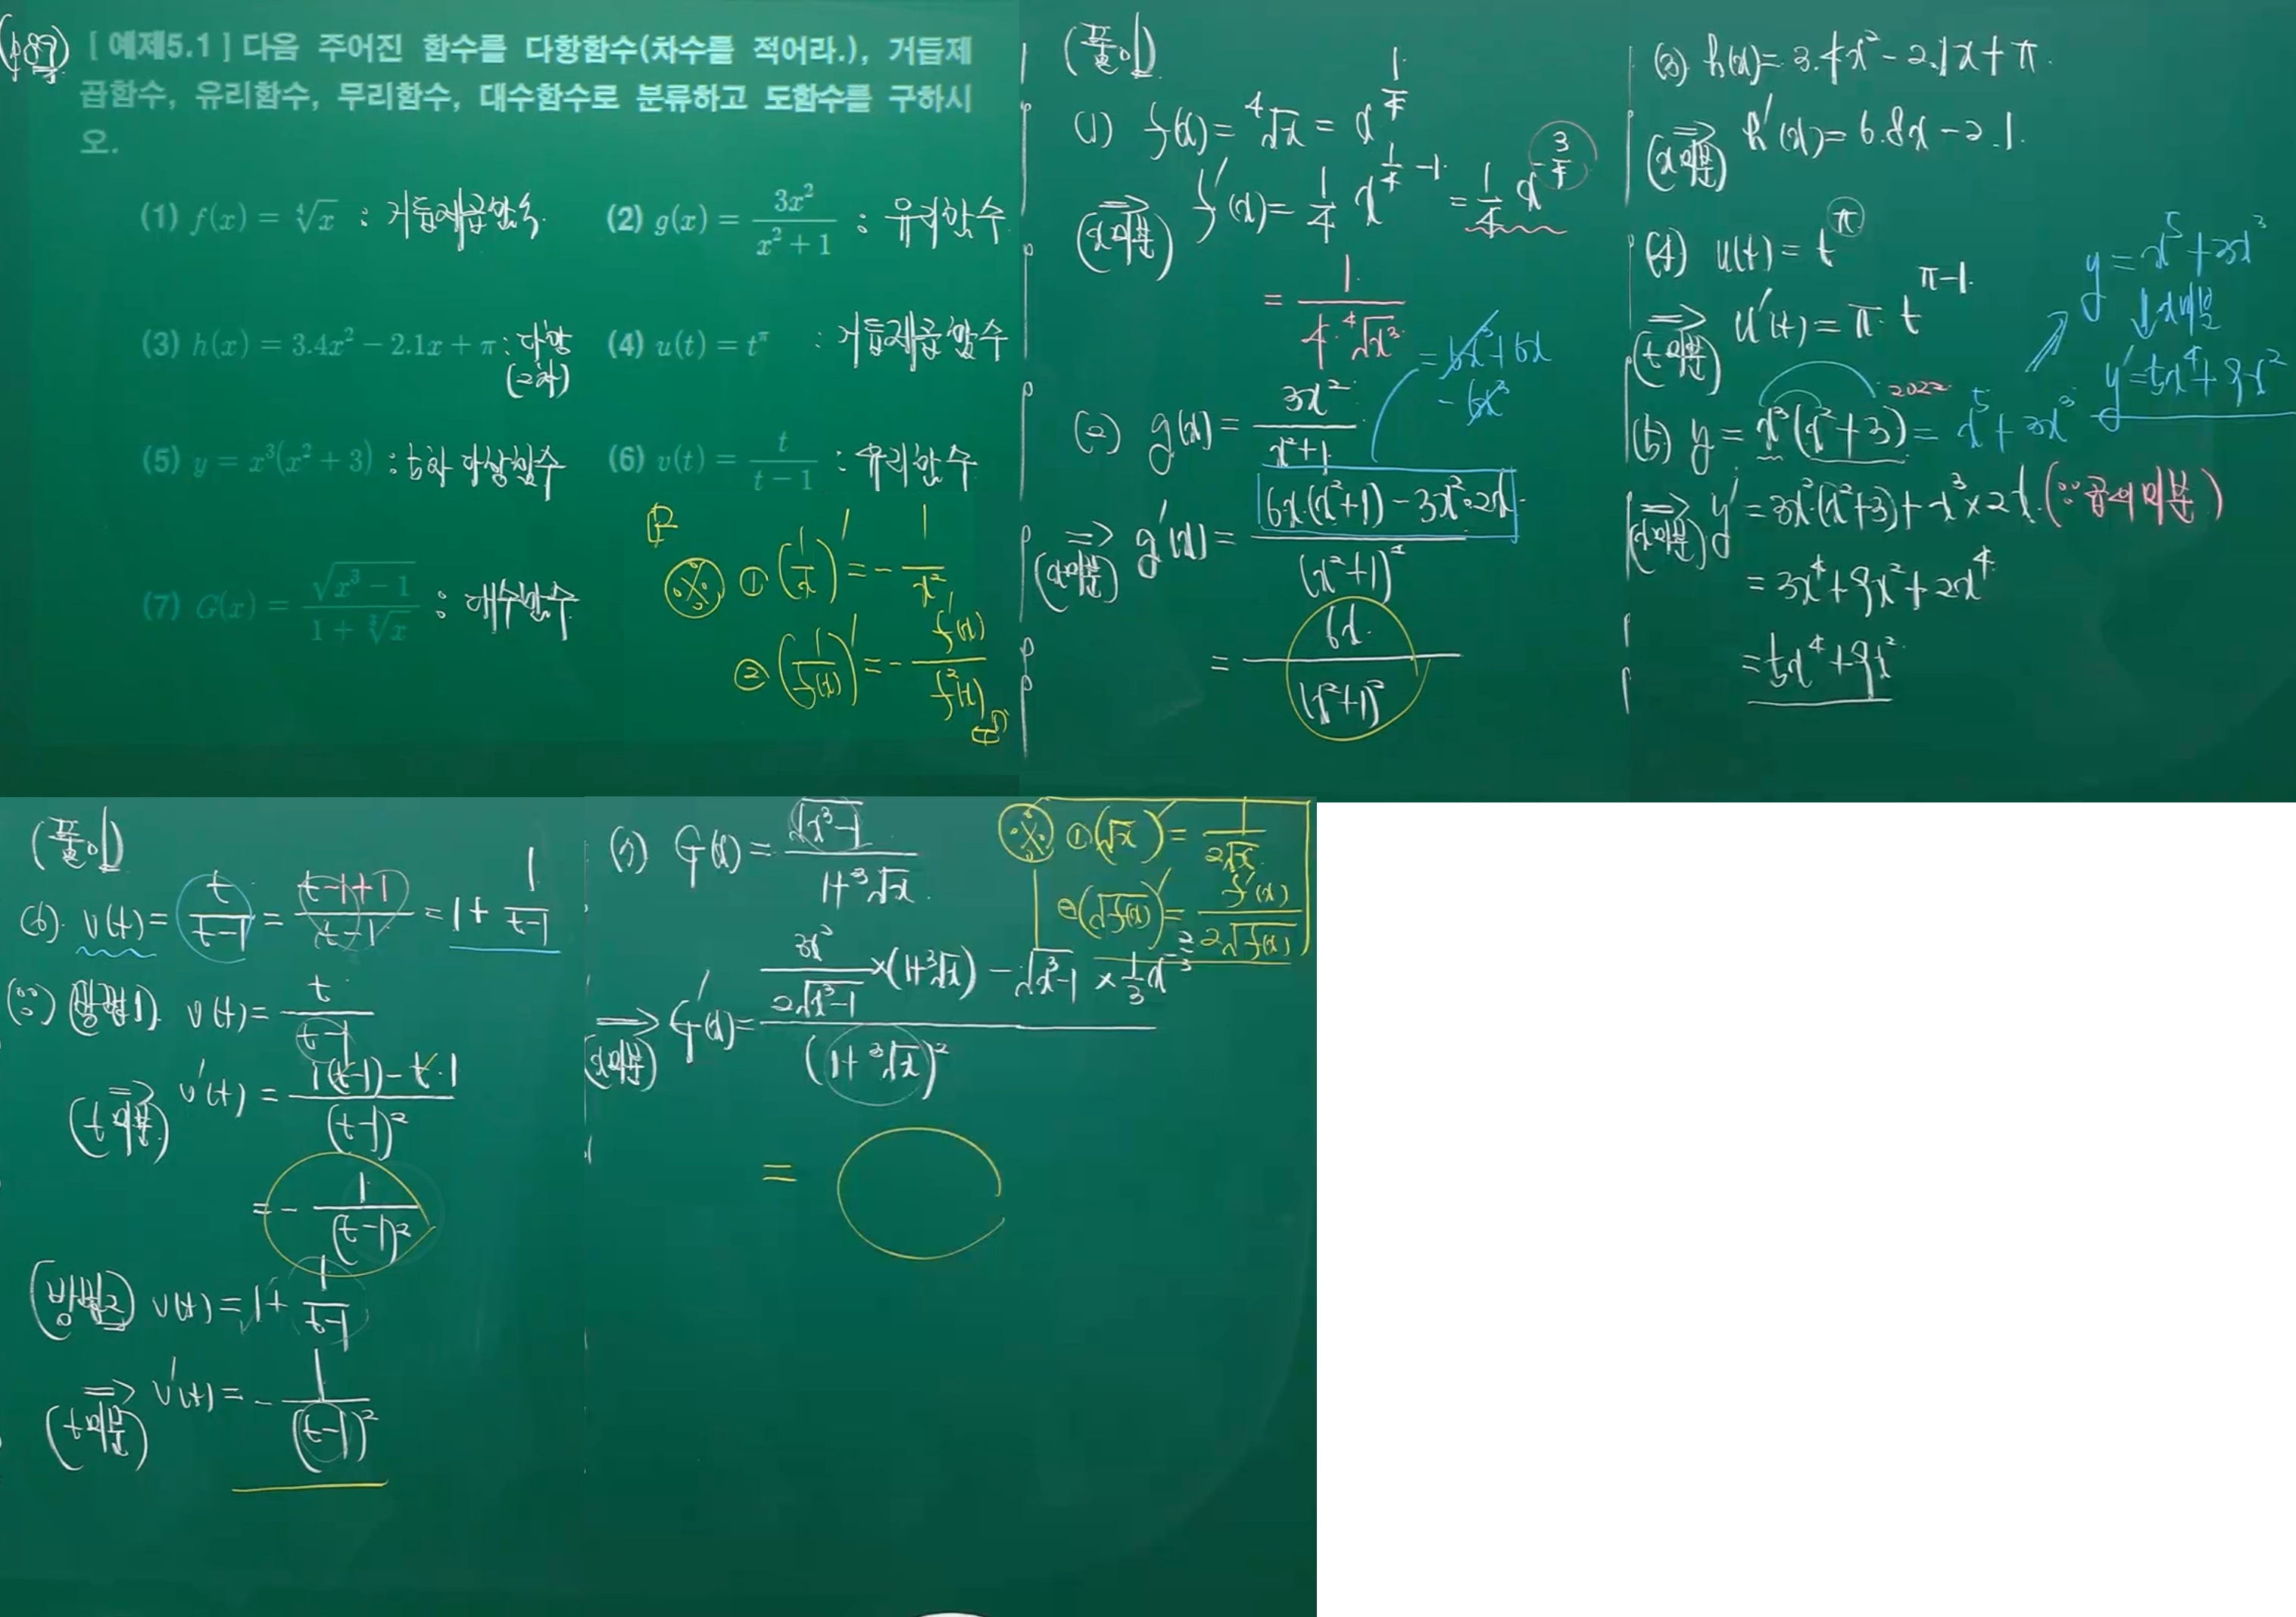 (p87) [ 예제5.1 ] 다음 주어진 함수를 다항함수(차수를 적어라.), 거듭제
곱함수, 유리함수, 무리함수, 대수함수로 분류하고 도함수를 구하시
오.
(1) f(x) = ∜x : 거듭제곱함수. (2) g(x) = 3x²/(x² + 1) : 유리함수.
(3) h(x) = 3.4x² − 2.1x + π : 다항 (2차) (4) u(t) = t^π : 거듭제곱함수
(5) y = x³(x² + 3) : 5차 다항함수 (6) v(t) = t/(t − 1) : 유리함수
(7) G(x) = √(x³ − 1)/(1 + ∛x) : 대수함수
※ ① (1/x)′ = − 1/x²
② (1/f(x))′ = − f′(x)/f²(x)
(풀이)
(1) f(x) = ∜x = x^(1/4)
⟹ (x미분) f′(x) = 1/4 x^(1/4 −1) = 1/4 x^(−3/4)
= 1/(4·∜x³)
(2) g(x) = 3x²/(x²+1)
= 6x³+6x − 6x³
⟹ (x미분) g′(x) = (6x·(x²+1) − 3x²·2x)/(x²+1)²
= 6x/(x²+1)²
(3) h(x) = 3.4x² − 2.1x + π.
⟹ (x미분) h′(x) = 6.8x − 2.1.
(4) u(t) = t^π
⟹ (t미분) u′(t) = π· t^(π−1)
(5) y = x³(x²+3) = x⁵+3x³
2022
y = x⁵+3x³
↓x미분
y′=5x⁴+9x²
⟹ (x미분) y′ = 3x²(x²+3) + x³×2x. (∵곱의미분)
= 3x⁴+9x²+2x⁴
= 5x⁴+9x²
(풀이)
(6). v(t) = t/(t−1) = (t−1+1)/(t−1) = 1 + 1/(t−1)
(∵) (방법1) v(t) = t/(t−1)
⟹ (t미분) v′(t) = (1(t−1) − t·1)/(t−1)²
= − 1/(t−1)²
(방법2) v(t) = 1 + 1/(t−1)
⟹ (t미분) v′(t) = − 1/(t−1)²
(7) G(x) = √(x³−1)/(1+∛x).
※ ① (√x)′ = 1/(2√x)
② (√f(x))′ = f′(x)/(2√f(x))
⟹ (x미분) G′(x) = (3x²/(2√(x³−1)) × (1+∛x) − √(x³−1) × 1/3 x^(−2/3))/(1+∛x)²
=